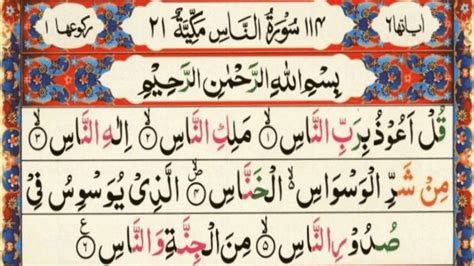 اٰیاتھا ٦ ١١٤ سُوْرَةُ النَّاسِ مَكِّيَّةٌ ٢١ رکوعھا ١
بِسْمِ اللهِ الرَّحْمٰنِ الرَّحِيْمِ
قُلْ اَعُوْذُ بِرَبِّ النَّاسِ ۙ﴿١﴾ مَلِكِ النَّاسِ ۙ﴿٢﴾ اِلٰهِ النَّاسِ ۙ﴿٣﴾
مِنْ شَرِّ الْوَسْوَاسِ ۙ۬ الْخَنَّاسِ ۪ۙ﴿٤﴾ الَّذِيْ يُوَسْوِسُ فِيْ
صُدُوْرِ النَّاسِ ۙ﴿٥﴾ مِنَ الْجِنَّةِ وَالنَّاسِ ﴿٦﴾ ع